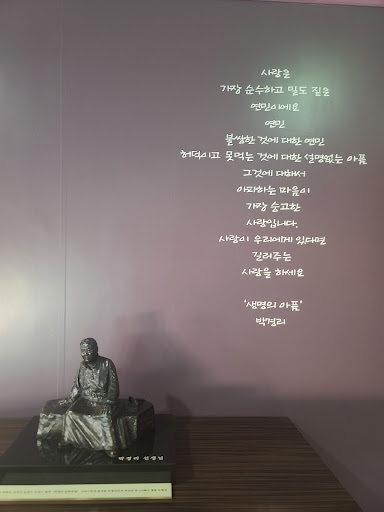 사랑은
가장 순수하고 밀도 짙은
연민이에요
연민
불쌍한 것에 대한 연민
허덕이고 못먹는 것에 대한 설명없는 아픔
그것에 대해서
아파하는 마음이
가장 숭고한
사랑입니다.
사랑이 우리에게 있다면
길러주는
사랑을 하세요
'생명의 아픔'
박경리
박경리 선생님